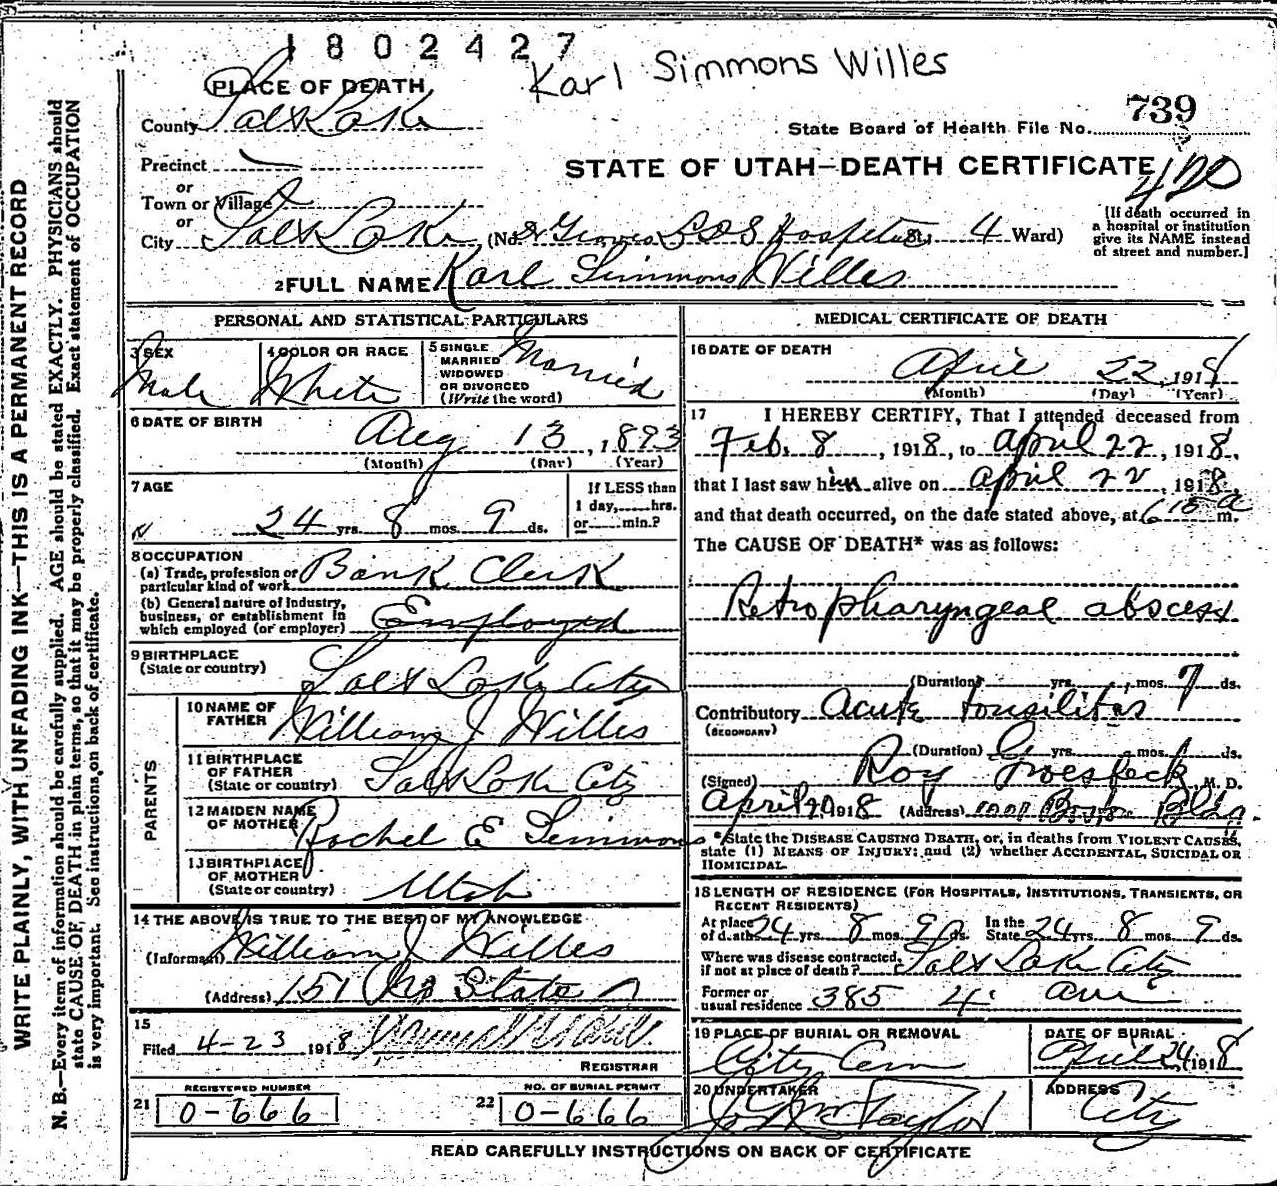 1802427
Karl Simmons Willes
PLACE OF DEATH
County Salt Lake
739
State Board of Health File No.
Precinct
STATE OF UTAH—DEATH CERTIFICATE
420
or
Town or Village
or
City Salt Lake (No. Groves LDS Hospital St. 4 Ward)
[If death occurred in
a hospital or institution
give its NAME instead
of street and number.]
2 FULL NAME Karl Simmons Willes
PERSONAL AND STATISTICAL PARTICULARS
3 SEX Male
4 COLOR OR RACE White
5 SINGLE
MARRIED
WIDOWED
OR DIVORCED
(Write the word) Married
6 DATE OF BIRTH Aug 13, 1893
(Month) (Day) (Year)
7 AGE
24 yrs. 8 mos. 9 ds.
If LESS than
1 day,......hrs.
or......min.?
8 OCCUPATION
(a) Trade, profession or
particular kind of work Bank Clerk
(b) General nature of industry,
business, or establishment in
which employed (or employer) Employed
9 BIRTHPLACE
(State or country) Salt Lake City
PARENTS
10 NAME OF
FATHER William J Willes
11 BIRTHPLACE
OF FATHER
(State or country) Salt Lake City
12 MAIDEN NAME
OF MOTHER Rachel E Simmons
13 BIRTHPLACE
OF MOTHER
(State or country) Utah
14 THE ABOVE IS TRUE TO THE BEST OF MY KNOWLEDGE
(Informant) William J Willes
(Address) 151 No State
15
Filed 4-23 1918
REGISTRAR
REGISTERED NUMBER
21 0-666
NO. OF BURIAL PERMIT
22 0-666
MEDICAL CERTIFICATE OF DEATH
16 DATE OF DEATH
April 22, 1918
(Month) (Day) (Year)
17 I HEREBY CERTIFY, That I attended deceased from
Feb. 8, 1918, to April 22, 1918,
that I last saw him alive on April 22, 1918,
and that death occurred, on the date stated above, at 6 15 a m.
The CAUSE OF DEATH* was as follows:
Retropharyngeal abscess
(Duration) yrs. mos. 7 ds.
Contributory Acute tonsilitis
(SECONDARY)
(Duration) yrs. mos. ds.
(Signed) Roy Groesbeck, M. D.
April 1918 (Address) Boston Bldg.
*State the DISEASE CAUSING DEATH, or, in deaths from VIOLENT CAUSES,
state (1) MEANS OF INJURY; and (2) whether ACCIDENTAL, SUICIDAL OR
HOMICIDAL.
18 LENGTH OF RESIDENCE (FOR HOSPITALS, INSTITUTIONS, TRANSIENTS, OR
RECENT RESIDENTS)
At place
of death 24 yrs. 8 mos. 9 ds. In the
State 24 yrs. 8 mos. 9 ds.
Where was disease contracted,
if not at place of death? Salt Lake City
Former or
usual residence 385 4. ave
19 PLACE OF BURIAL OR REMOVAL
City Cem
DATE OF BURIAL
April 24 1918
20 UNDERTAKER
Taylor
ADDRESS
City
READ CAREFULLY INSTRUCTIONS ON BACK OF CERTIFICATE
WRITE PLAINLY, WITH UNFADING INK—THIS IS A PERMANENT RECORD
N. B.—Every item of information should be carefully supplied. AGE should be stated EXACTLY. PHYSICIANS should
state CAUSE OF DEATH in plain terms, so that it may be properly classified. Exact statement of OCCUPATION
is very important. See instructions on back of certificate.